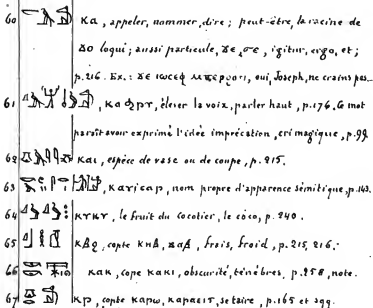 60 ⲕⲁ, appeler, nommer, dire; peut-être, la racine de
ϫⲟ loqui; aussi particule, ϫⲉ, ϭⲉ, igitur, ergo, et;
p. 216. Ex.: ϫⲉ ⲓⲱⲥⲉⲫ ⲙⲡⲉⲣϩⲟϯ, oui, Joseph, ne crains pas.
61 élever la voix, parler haut, p. 176. Ce mot
paraît avoir exprimé l'idée imprécation, cri magique, p. 99.
62 ⲕⲁⲓ, espèce de vase ou de coupe, p. 215.
63 nom propre d'apparence sémitique, p. 143.
64 ⲕⲩⲕⲩ, le fruit du cocotier, le coco, p. 240.
65 ⲕⲃϩ, copte ⲕⲏⲃ, frais, froid, p. 215, 216.
66 ⲕⲁⲕ, cope ⲕⲁⲕⲓ, obscurité, ténèbres, p. 258, note.
67 ⲕⲣ, copte ⲕⲁⲣⲱ, se taire, p. 165 et sqq.